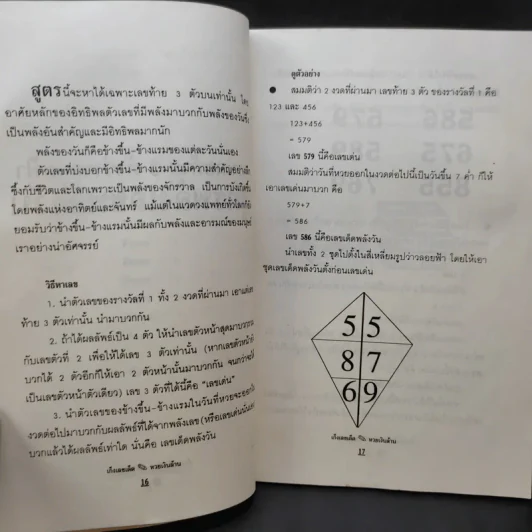 สูตรนี้จะหาได้เฉพาะเลขท้าย 3 ตัวบนเท่านั้น โดย
อาศัยหลักของอิทธิพลตัวเลขที่มีพลังมาบวกกับพลังของวันซึ่ง
เป็นพลังอันสำคัญและมีอิทธิพลมากนัก
พลังของวันก็คือข้างขึ้น-ข้างแรมของแต่ละวันนั่นเอง
ตัวเลขที่บ่งบอกข้างขึ้น-ข้างแรมนั้นมีความสำคัญอย่างลึก
ซึ้งกับชีวิตและโลกเพราะเป็นพลังของจักรวาล เป็นการบังเกิดขึ้น
โดยพลังแห่งอาทิตย์และจันทร์ แม้แต่ในแวดวงแพทย์ทั่วโลกก็
ยอมรับว่าข้างขึ้น-ข้างแรมนั้นมีผลกับพลังและอารมณ์ของมนุษย์
เราอย่างน่าอัศจรรย์
วิธีหาเลข
1. นำตัวเลขของรางวัลที่ 1 ทั้ง 2 งวดที่ผ่านมา เอาแต่เลข
ท้าย 3 ตัวเท่านั้น นำมาบวกกัน
2. ถ้าได้ผลลัพธ์เป็น 4 ตัว ให้นำเลขตัวหน้าสุดมาบวก
กับเลขตัวที่ 2 เพื่อให้ได้เลข 3 ตัวเท่านั้น (หากเลขตัวหน้า
บวกได้ 2 ตัวอีกก็ให้เอา 2 ตัวหน้านั้นมาบวกกัน จนกว่าจะได้
เป็นเลขตัวหน้าตัวเดียว) เลข 3 ตัวที่ได้นี้คือ "เลขเด่น"
3. นำตัวเลขของข้างขึ้น-ข้างแรมในวันที่หวยจะออกใน
งวดต่อไปมาบวกกับผลลัพธ์ที่ได้จากพลังเลข(หรือเลขเด่นนั่นเอง)
บวกแล้วได้ผลลัพธ์เท่าใด นั่นคือ เลขเด็ดพลังวัน
เก็งเลขเด็ด หวยเงินล้าน
16
ดูตัวอย่าง
● สมมติว่า 2 งวดที่ผ่านมา เลขท้าย 3 ตัว ของรางวัลที่ 1 คือ
123 และ 456
123+456
= 579
เลข 579 นี้คือเลขเด่น
สมมติว่าวันที่หวยออกในงวดต่อไปนี้เป็นวันขึ้น 7 ค่ำ ก็ให้
เอาเลขเด่นมาบวก คือ
579+7
= 586
เลข 586 นี้คือเลขเด็ดพลังวัน
นำเลขทั้ง 2 ชุดไปตั้งในสี่เหลี่ยมรูปว่าวลอยฟ้า โดยให้เอา
ชุดเลขเด็ดพลังวันตั้งก่อนเลขเด่น
5 5
8 7
6 9
เก็งเลขเด็ด หวยเงินล้าน
17